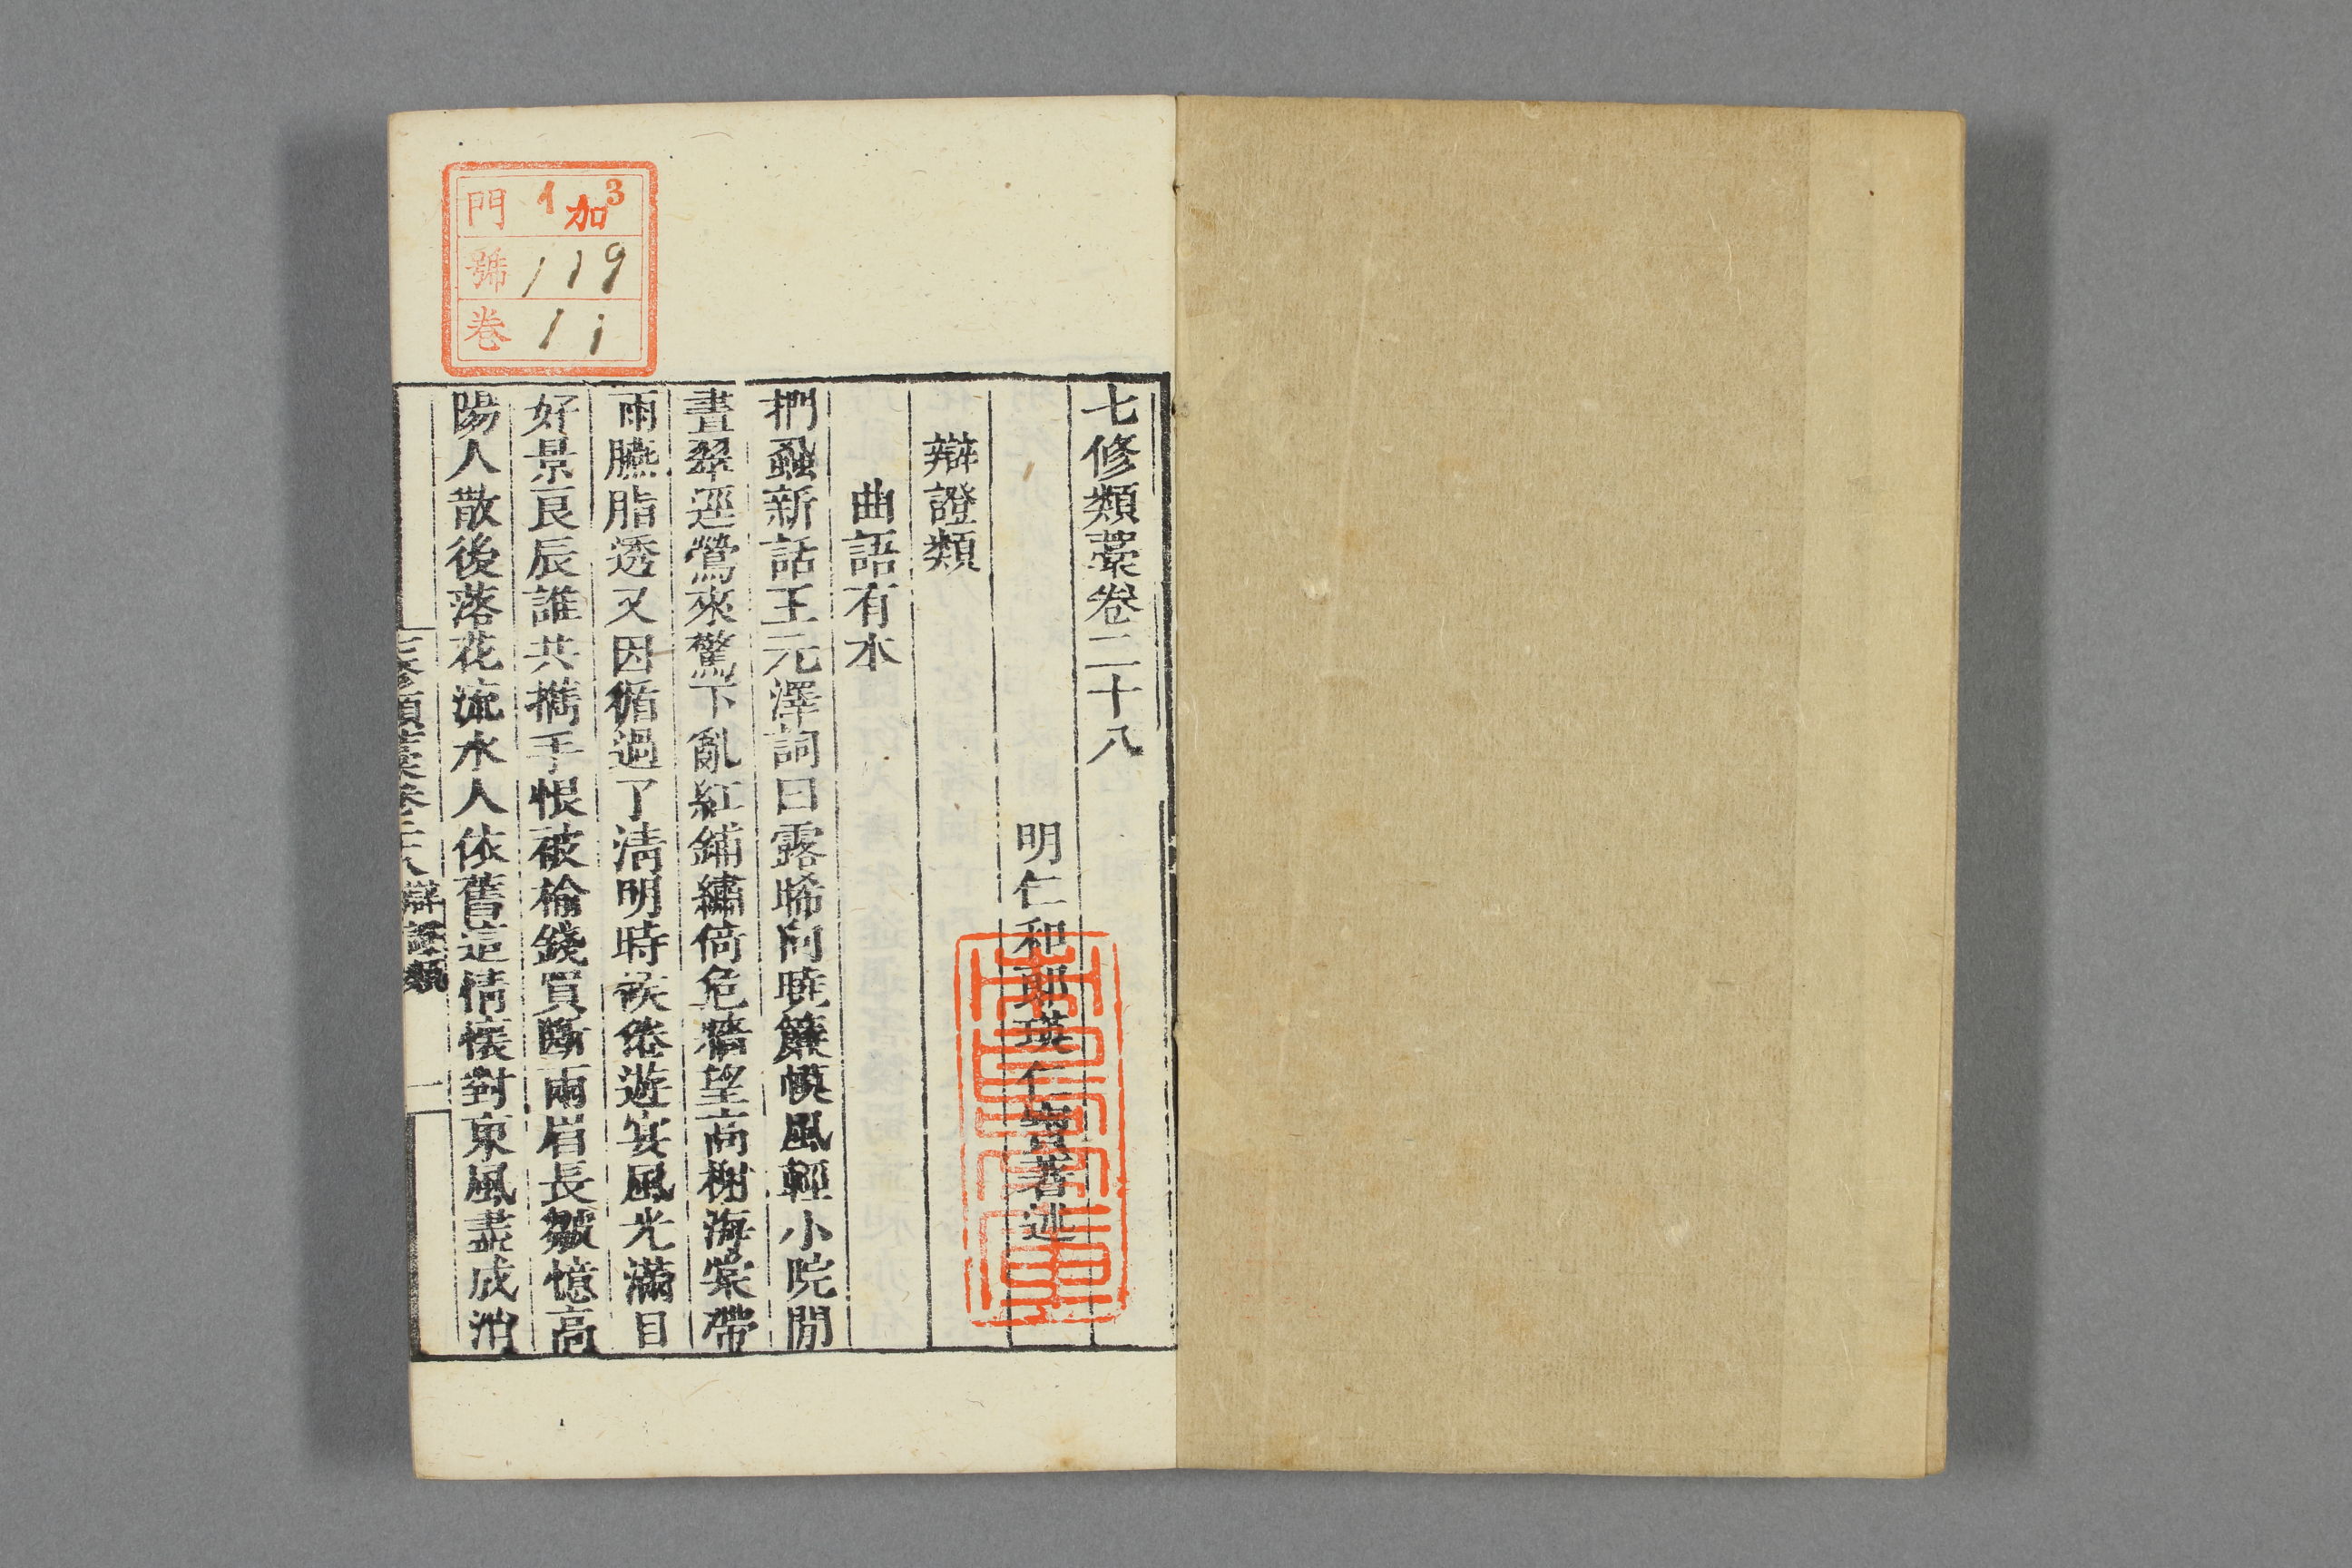 七修類藁卷二十八
明仁和郎瑛仁寶著述
辯證類
曲語有本
捫蝨新話王元澤詞曰露晞向曉簾幙風輕小院閒
晝翠逕鶯來驚下亂紅鋪繡倚危墻望高榭海棠帶
雨臙脂透又因循過了淸明時候倦遊宴風光滿目
好景良辰誰共擕手恨被榆錢買斷兩眉長皺憶高
陽人散後落花流水人依舊這情懷對東風盡成消
七修類藁卷二十八 辯證類 一
門 1加3
號 119
卷 11